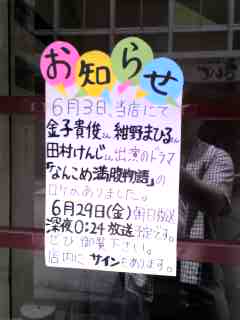 お知らせ
6月3日、当店にて
金子貴俊さん 紺野まひるさん
田村けんじさん出演のドラマ
『なんこめ満腹物語』の
ロケがありました。
6月29日(金)朝日放送
深夜0:24放送予定です。
ぜひ御覧下さい。
店内にサインもあります。